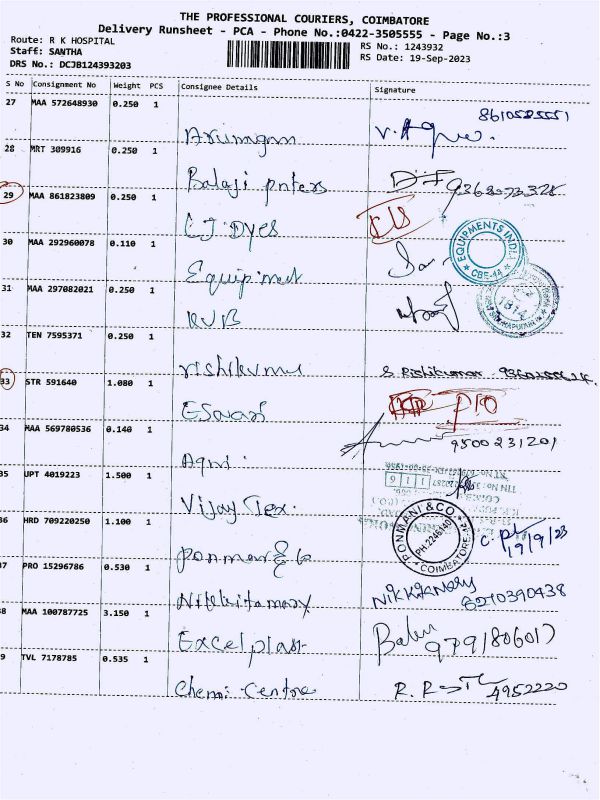 THE PROFESSIONAL COURIERS, COIMBATORE
Delivery Runsheet - PCA - Phone No.:0422-3505555 - Page No.:3
Route: R K HOSPITAL
Staff: SANTHA
DRS No.: DCJB124393203
RS No.: 1243932
RS Date: 19-Sep-2023
S No Consignment No Weight PCS Consignee Details Signature
27 MAA 572648930 0.250 1 Arumugam 8610585551
28 MRT 309916 0.250 1 Balaji pnters
29 MAA 861823809 0.250 1 CJ Dyes
30 MAA 292960078 0.110 1 Equipment EQUIPMENTS INDIA CBE-14
31 MAA 297082021 0.250 1 KVB
32 TEN 7595371 0.250 1 rishikumar S. Rishikumar
33 STR 591640 1.080 1 Eswari P10
34 MAA 569780536 0.140 1 Agni 9500231201
35 UPT 4019223 1.500 1 Vijay Tex.
36 HRD 709220250 1.100 1 ponmani & Co PONMANI & CO. PH:2246140 COIMBATORE 19/9/23
37 PRO 15296786 0.530 1 6210390438
38 MAA 100787725 3.150 1 Excel plast Babu 9791806017
39 TVL 7178785 0.535 1 Chemi Centre 4952220